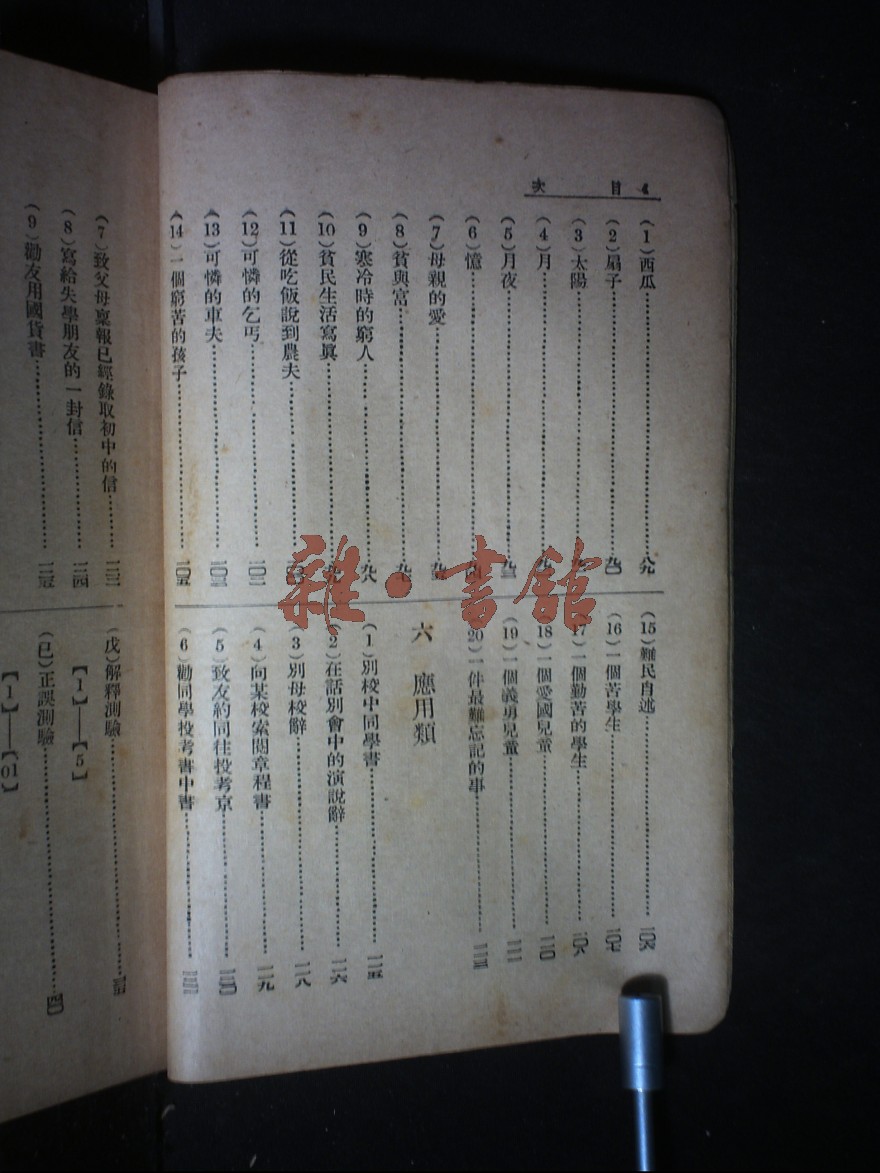 目次 4
(1)西瓜……八九
(2)扇子……九〇
(3)太陽……九一
(4)月……九二
(5)月夜……九三
(6)憶……九四
(7)母親的愛……九五
(8)貧與富……九七
(9)寒冷時的窮人……九八
(10)貧民生活寫眞……九九
(11)從吃飯說到農夫
(12)可憐的乞丐……一〇二
(13)可憐的車夫……一〇三
(14)一個窮苦的孩子……一〇五
(15)難民自述……一〇六
(16)一個苦學生……一〇七
(17)一個勤苦的學生……一〇八
(18)一個愛國兒童……一一〇
(19)一個義勇兒童……一一一
(20)一件最難忘記的事……一一三
六 應用類
(1)別校中同學書……一一五
(2)在話別會中的演說辭……一一六
(3)別母校辭……一一八
(4)向某校索閱章程書……一一九
(5)致友約同往投考京……一二〇
(6)勸同學投考書中書
(7)致父母稟報已經錄取初中的信
(8)寫給失學朋友的一封信……一二四
(9)勸友用國貨書……一二五
(戊)解釋測驗
【1】——【5】
(巳)正誤測驗
【1】——【01】
雜·書館